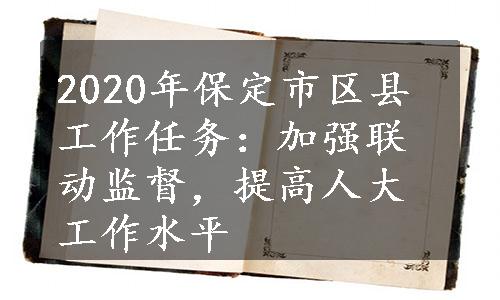 2020年保定市区县
工作任务：加强联
动监督，提高人大
工作水平